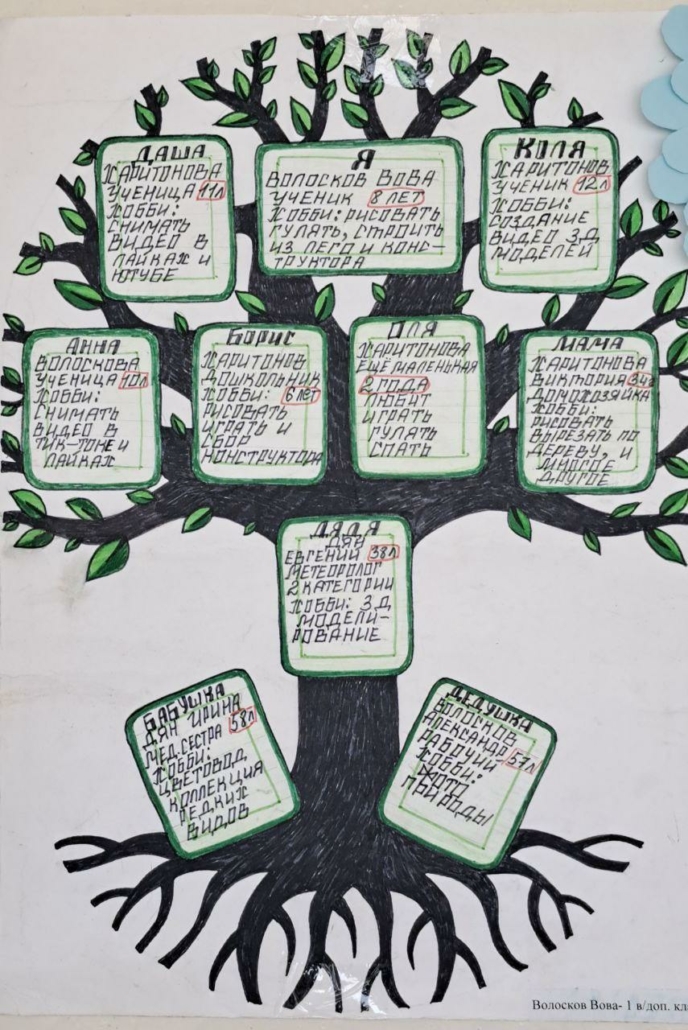 ДАША
ХАРИТОНОВА
УЧЕНИЦА 11Л
ХОББИ:
СНИМАТЬ
ВИДЕО В
ЛАЙКАХ И
ЮТУБЕ
Я
ВОЛОСКОВ ВОВА
УЧЕНИК 8 ЛЕТ
ХОББИ: РИСОВАТЬ
ГУЛЯТЬ, СТРОИТЬ
ИЗ ЛЕГО И КОНС-
ТРУКТОРА
КОЛЯ
ХАРИТОНОВ
УЧЕНИК 12Л
ХОББИ:
СОЗДАНИЕ
ВИДЕО 3Д
МОДЕЛЕЙ
АННА
ВОЛОСКОВА
УЧЕНИЦА 10Л
ХОББИ:
СНИМАТЬ
ВИДЕО В
ТИК-ТОКЕ И
ЛАЙКАХ
БОРИС
ХАРИТОНОВ
ДОШКОЛЬНИК
ХОББИ: 6 ЛЕТ
РИСОВАТЬ
ИГРАТЬ И
СБОР
КОНСТРУКТОРА
ОЛЯ
ХАРИТОНОВА
ЕЩЁ МАЛЕНЬКАЯ
2 ГОДА
ЛЮБИТ
ИГРАТЬ
ГУЛАТЬ
СПАТЬ
МАМА
ХАРИТОНОВА
ВИКТОРИЯ 34г
ДОМОХОЗЯЙКА
ХОББИ:
РИСОВАТЬ
ВЫРЕЗАТЬ ПО
ДЕРЕВУ, И
МНОГОЕ
ДРУГОЕ
ДЯДЯ
ДЯН
ЕВГЕНИЙ 38Л
МЕТЕОРОЛОГ
2 КАТЕГОРИИ
ХОББИ: 3Д
МОДЕЛИ-
РОВАНИЕ
БАБУШКА
ДЯН ИРИНА
МЕД.СЕСТРА 58Л
ХОББИ:
ЦВЕТОВОД
КОЛЛЕКЦИЯ
РЕДКИХ
ВИДОВ
ДЕДУШКА
ВОЛОСКОВ
АЛЕКСАНДР
РАБОЧИЙ 57Л
ХОББИ:
ФОТО
ПРИРОДЫ
Волосков Вова- 1 в/доп. кл